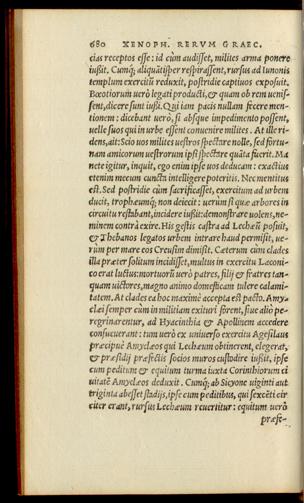 680 XENOPH. RERVM GRAEC.
cias receptos esse: id cùm audisset, milites arma ponere
iußit. Cumq́; aliquātisper respirassent, rursus ad Iunonis
templum exercitũ reduxit, postridie captiuos exposuit.
Bœotiorum uerò legati producti, & quam ob rem uenis-
sent, dicere sunt iußi. Qui iam pacis nullam fecere men-
tionem: dicebant uerò, si absque impedimento possent,
uelle suos qui in urbe essent conuenire milites. At ille ri-
dens, ait: Scio uos milites uestros spectare nolle, sed fortu-
nam amicorum uestrorum ipsi spectare quāta fuerit. Ma
nete igitur, inquit, ego enim ipse uos deducam: exactius
etenim mecum cuncta intelligere poteritis. Nec mentitus
est. Sed postridie cùm sacrificasset, exercitum ad urbem
ducit, trophæumq́; non deiecit: uerùm si quæ arbores in
circuitu restabant, incidere iußit: demonstrare uolens, ne-
minem contrà exire. His gestis castra ad Lechæũ posuit,
& Thebanos legatos urbem intrare haud permisit, ue-
rùm per mare eos Creusim dimisit. Cæterum cùm clades
illa præter solitum incidisset, multus in exercitu Laconi-
co erat luctus: mortuorũ uerò patres, filij & fratres tan-
quam uictores, magno animo domesticam tulere calami-
tatem. At clades ea hoc maximè accepta est pacto. Amy-
clæi semper cùm in militiam exituri forent, siue alio pe-
regrinarentur, ad Hyacinthia & Apollinem accedere
consueuerant: tum uerò ex uniuerso exercitu Agesilaus
præcipuè Amyclæos qui Lechæum obtinerent, elegerat,
& præsidij præfectis socios muros custodire iußit, ipse
cum peditum & equitum turma iuxta Corinthiorum ci
uitatē Amyclæos deduxit. Cumq́; ab Sicyone uiginti aut
triginta abesset stadijs, ipse cum peditibus, qui sexcēti cir
citer erant, rursus Lechæum reuertitur: equitum uerò
præfe-